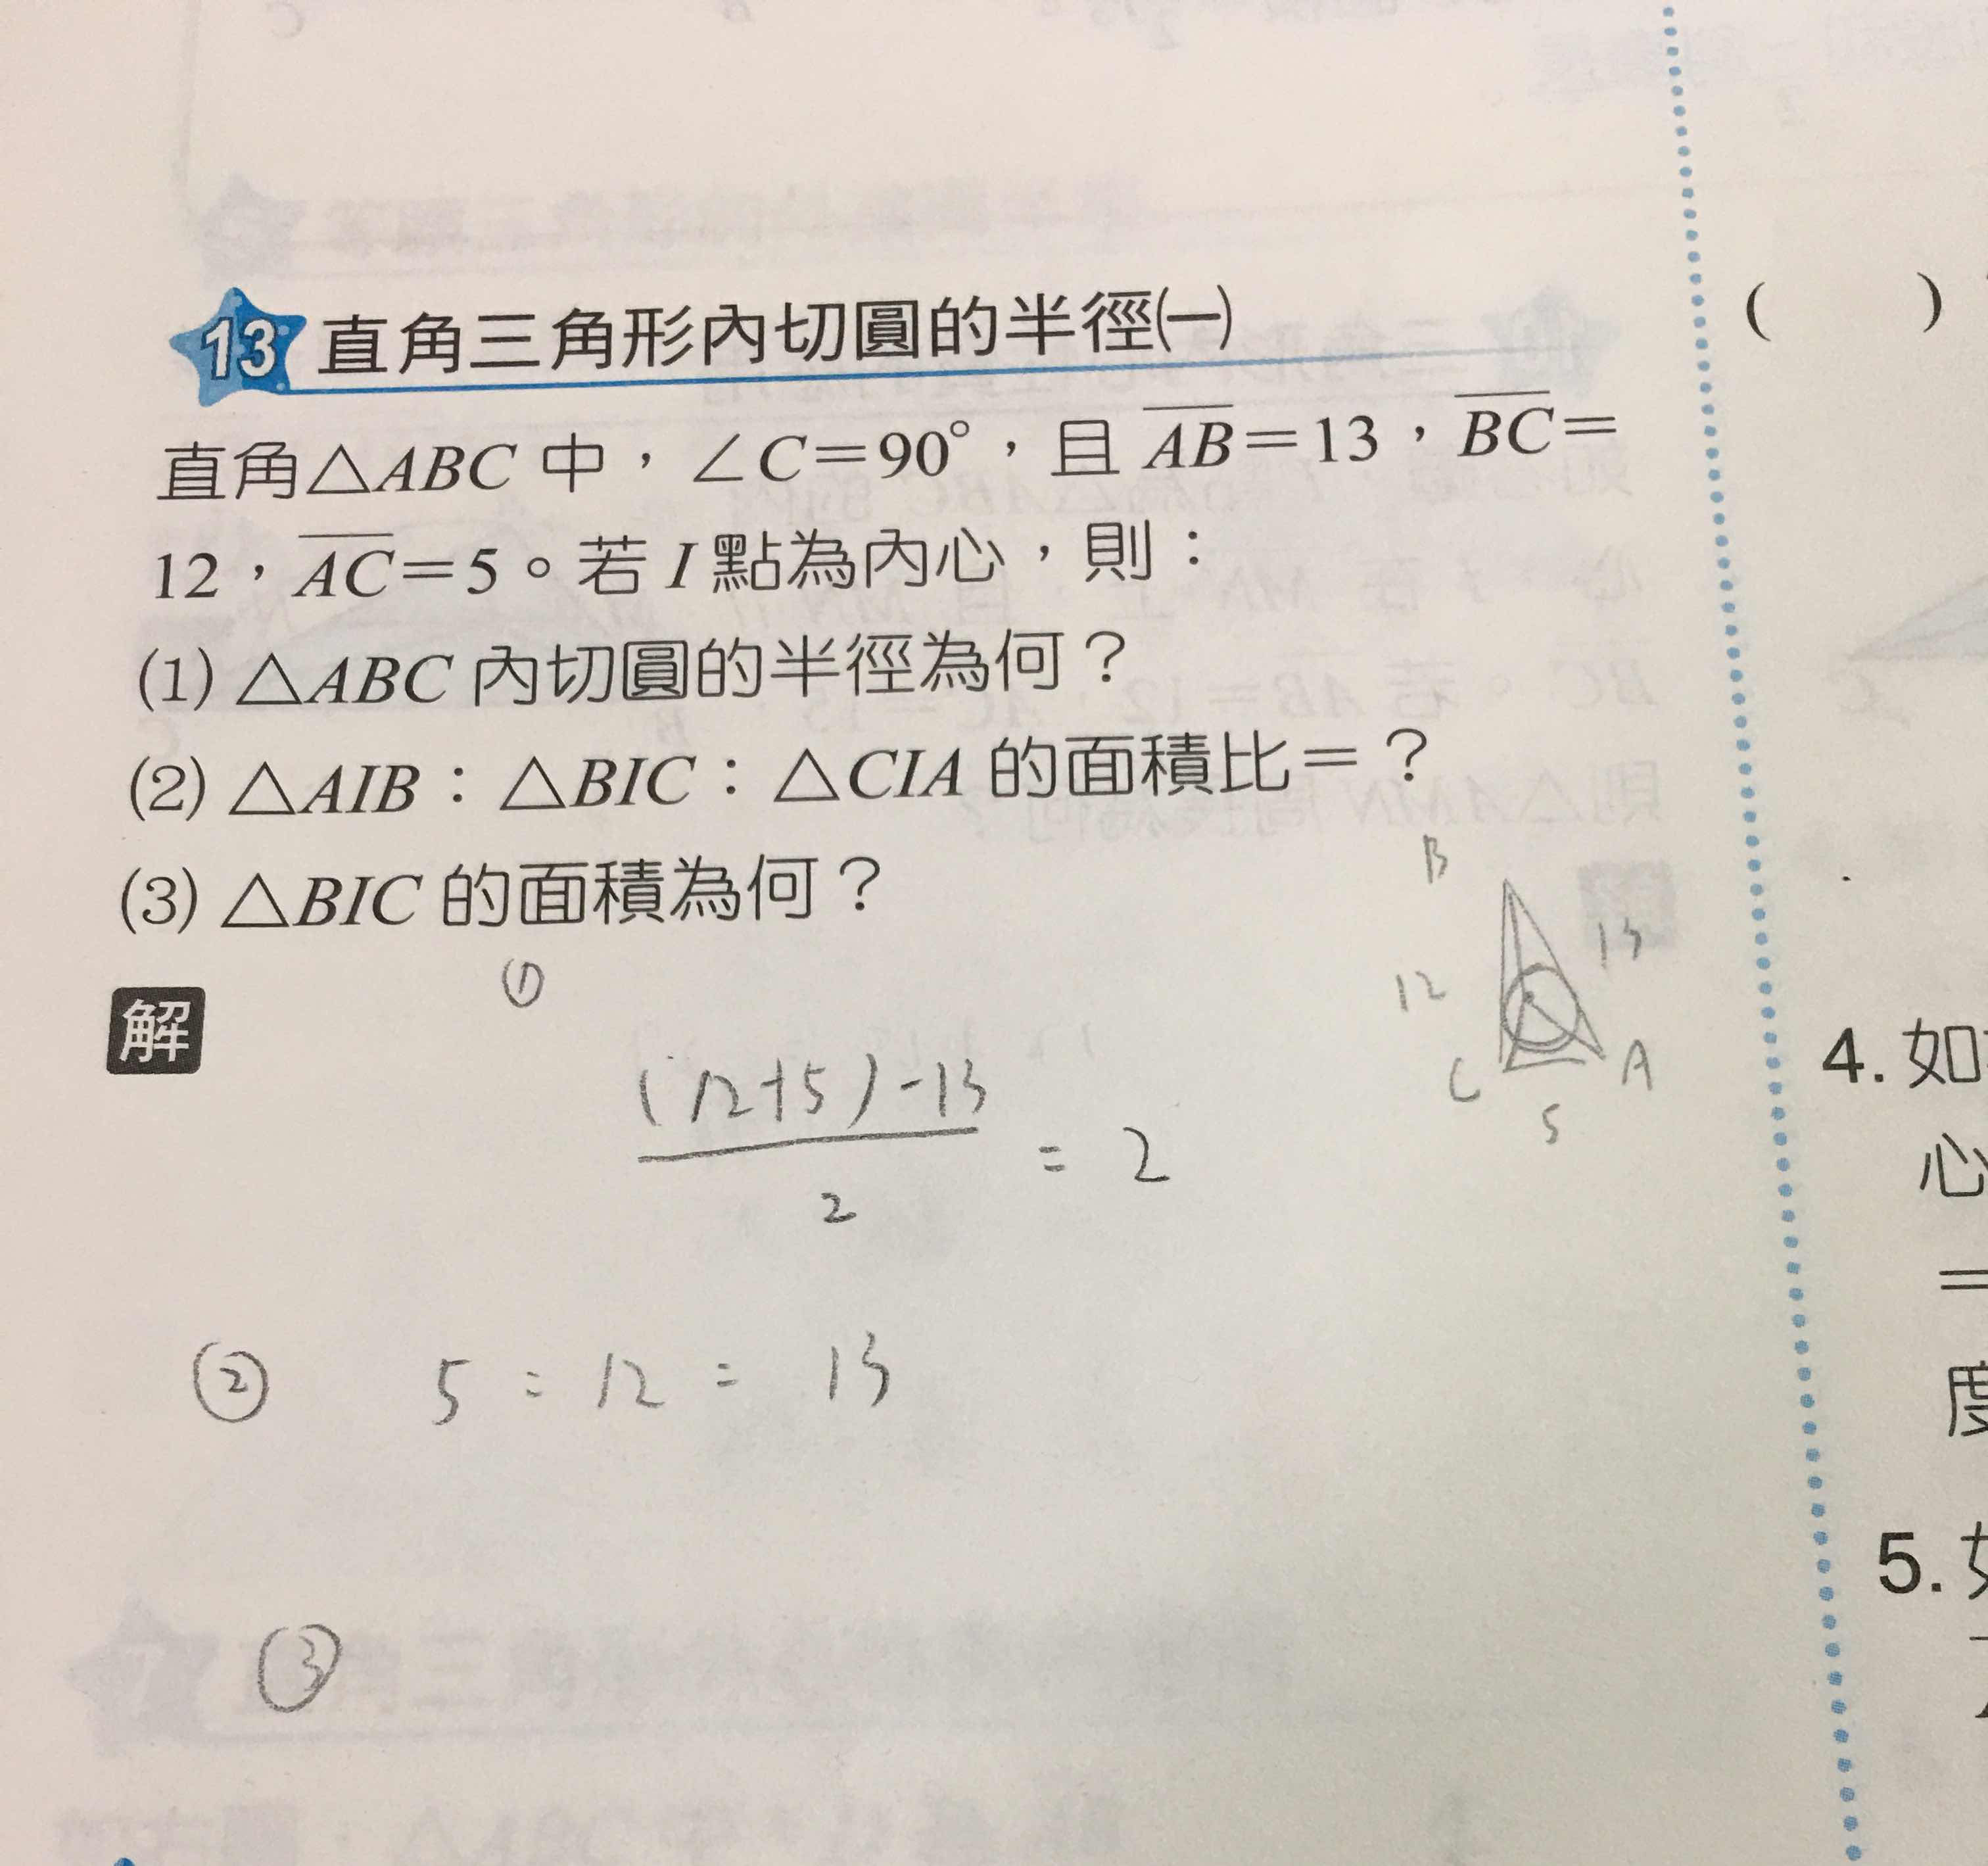 13 直角三角形內切圓的半徑(一)
直角△ABC 中，∠C=90°，且 AB=13，BC=
12，AC=5。若 I 點為內心，則：
(1) △ABC 內切圓的半徑為何？
(2) △AIB：△BIC：△CIA 的面積比=？
(3) △BIC 的面積為何？
解
①
(12+5)-13
2
= 2
B
12
13
C
A
5
② 5 : 12 : 13
③
( )
4. 如
心
=
度
5.